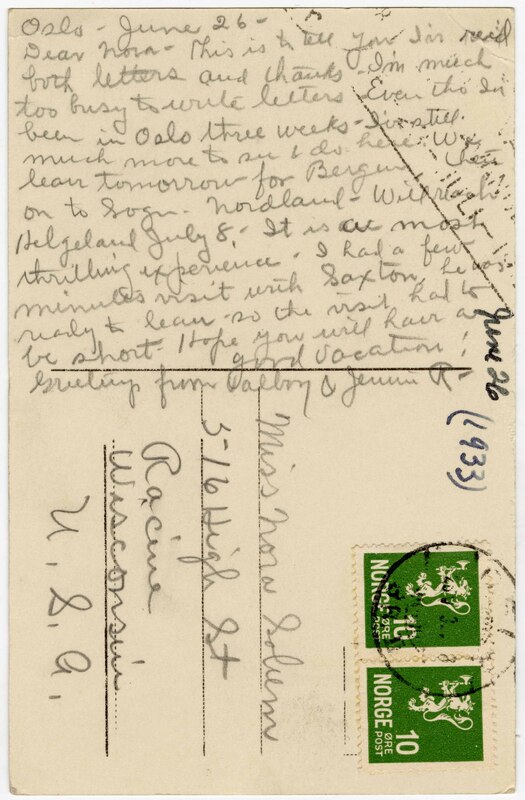 Oslo - June 26 -
Dear Nora - This is to tell you I've rec'd
both letters and thanks - I'm much
too busy to write letters Even tho I've
been in Oslo three weeks - I've still
much more to see & do here. We
leave tomorrow for Bergen then
on to Sogn - Nordland - Will reach
Helgeland July 8. It is a most
thrilling experience. I had a few
minutes visit with Saxton, he was
ready to leave so the visit had to
be short - Hope you will have a
good vacation!
Greetings from Valborg & Jennie R -
June 26
(1933)
Miss Nora Solem
3-16 High St
Racine
Wisconsin
U. S. A.
NORGE
10
ØRE
POST
NORGE
10
ØRE
POST